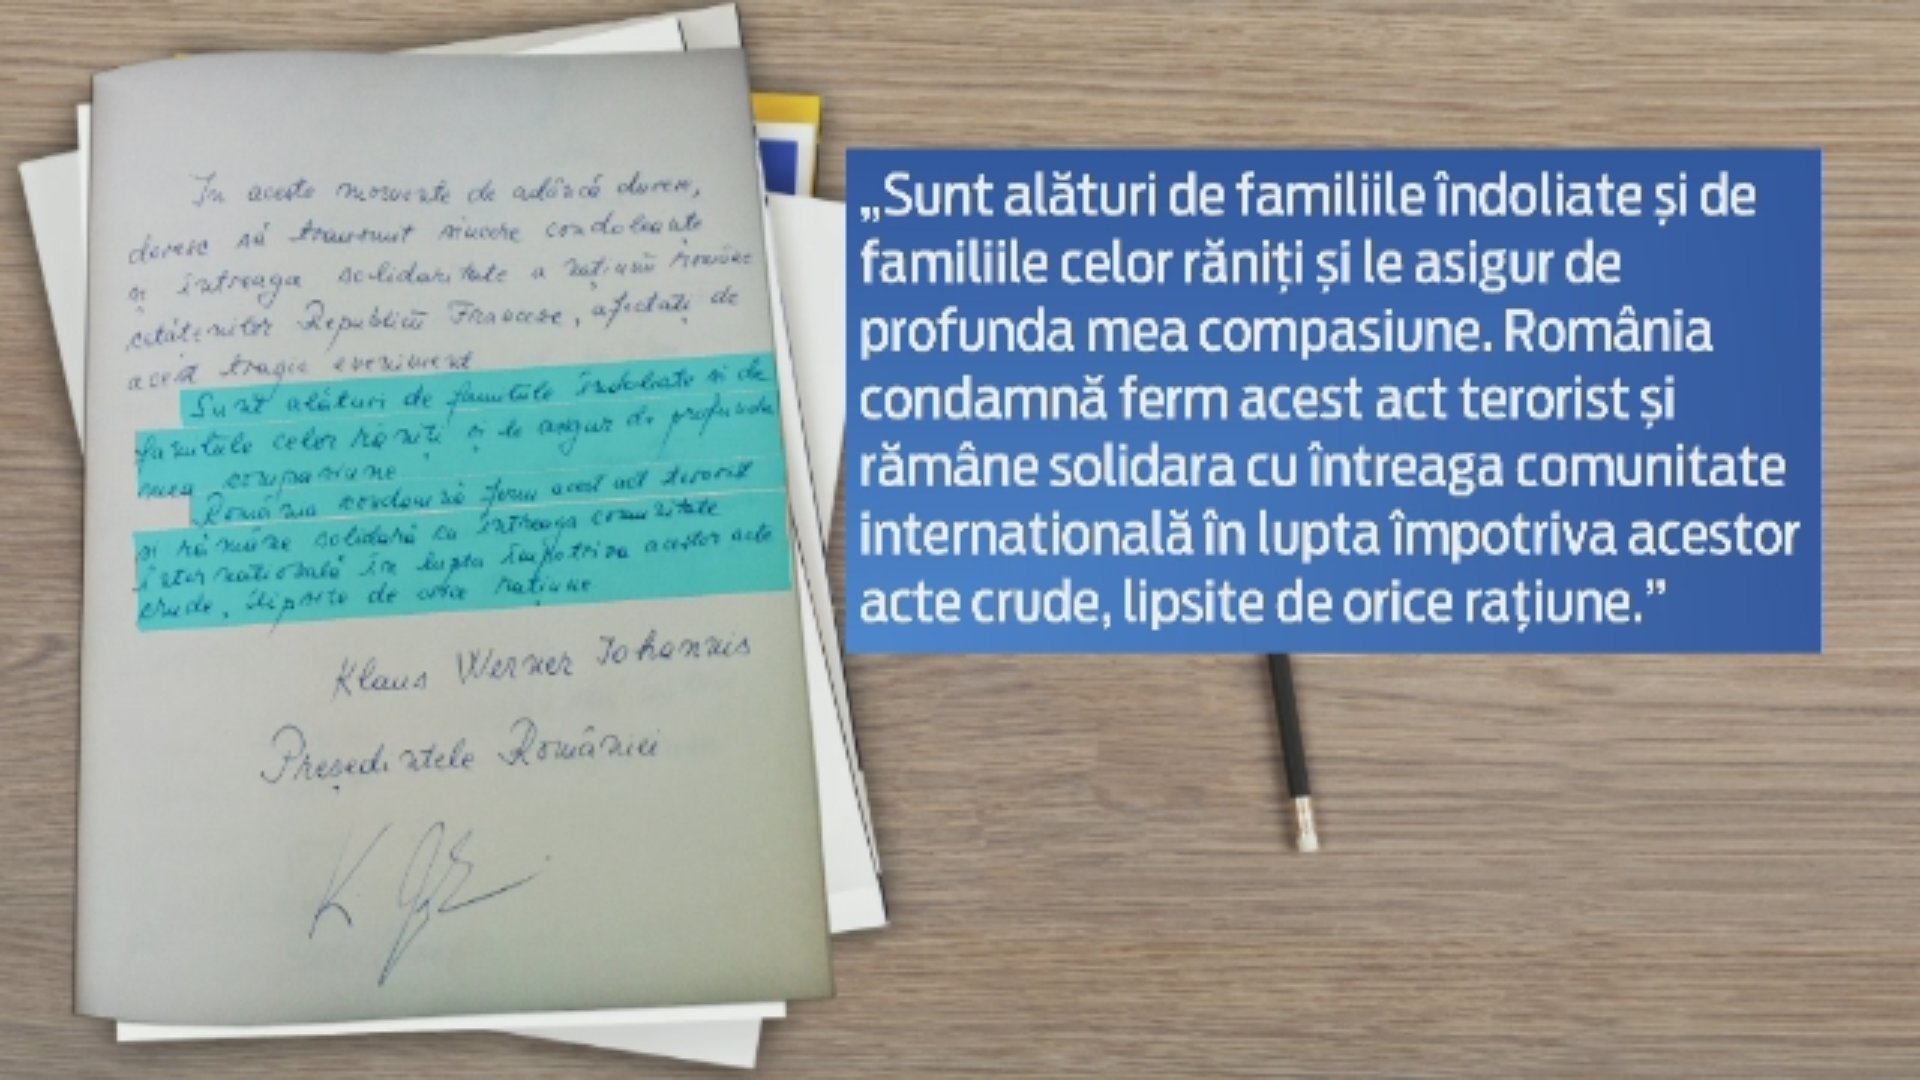 In aceste momente de adâncă durere,
doresc să transmit sincere condoleanțe
și întreaga solidaritate a națiunii române
cetățenilor Republicii Franceze, afectați de
acest tragic eveniment
Sunt alături de familiile îndoliate și de
familiile celor răniți și le asigur de profunda
mea compasiune.
România condamnă ferm acest act terorist
și rămâne solidară cu întreaga comunitate
internațională în lupta împotriva acestor acte
crude, lipsite de orice rațiune
Klaus Werner Iohannis
Președintele României
„Sunt alături de familiile îndoliate și de
familiile celor răniți și le asigur de
profunda mea compasiune. România
condamnă ferm acest act terorist și
rămâne solidara cu întreaga comunitate
internatională în lupta împotriva acestor
acte crude, lipsite de orice rațiune.”